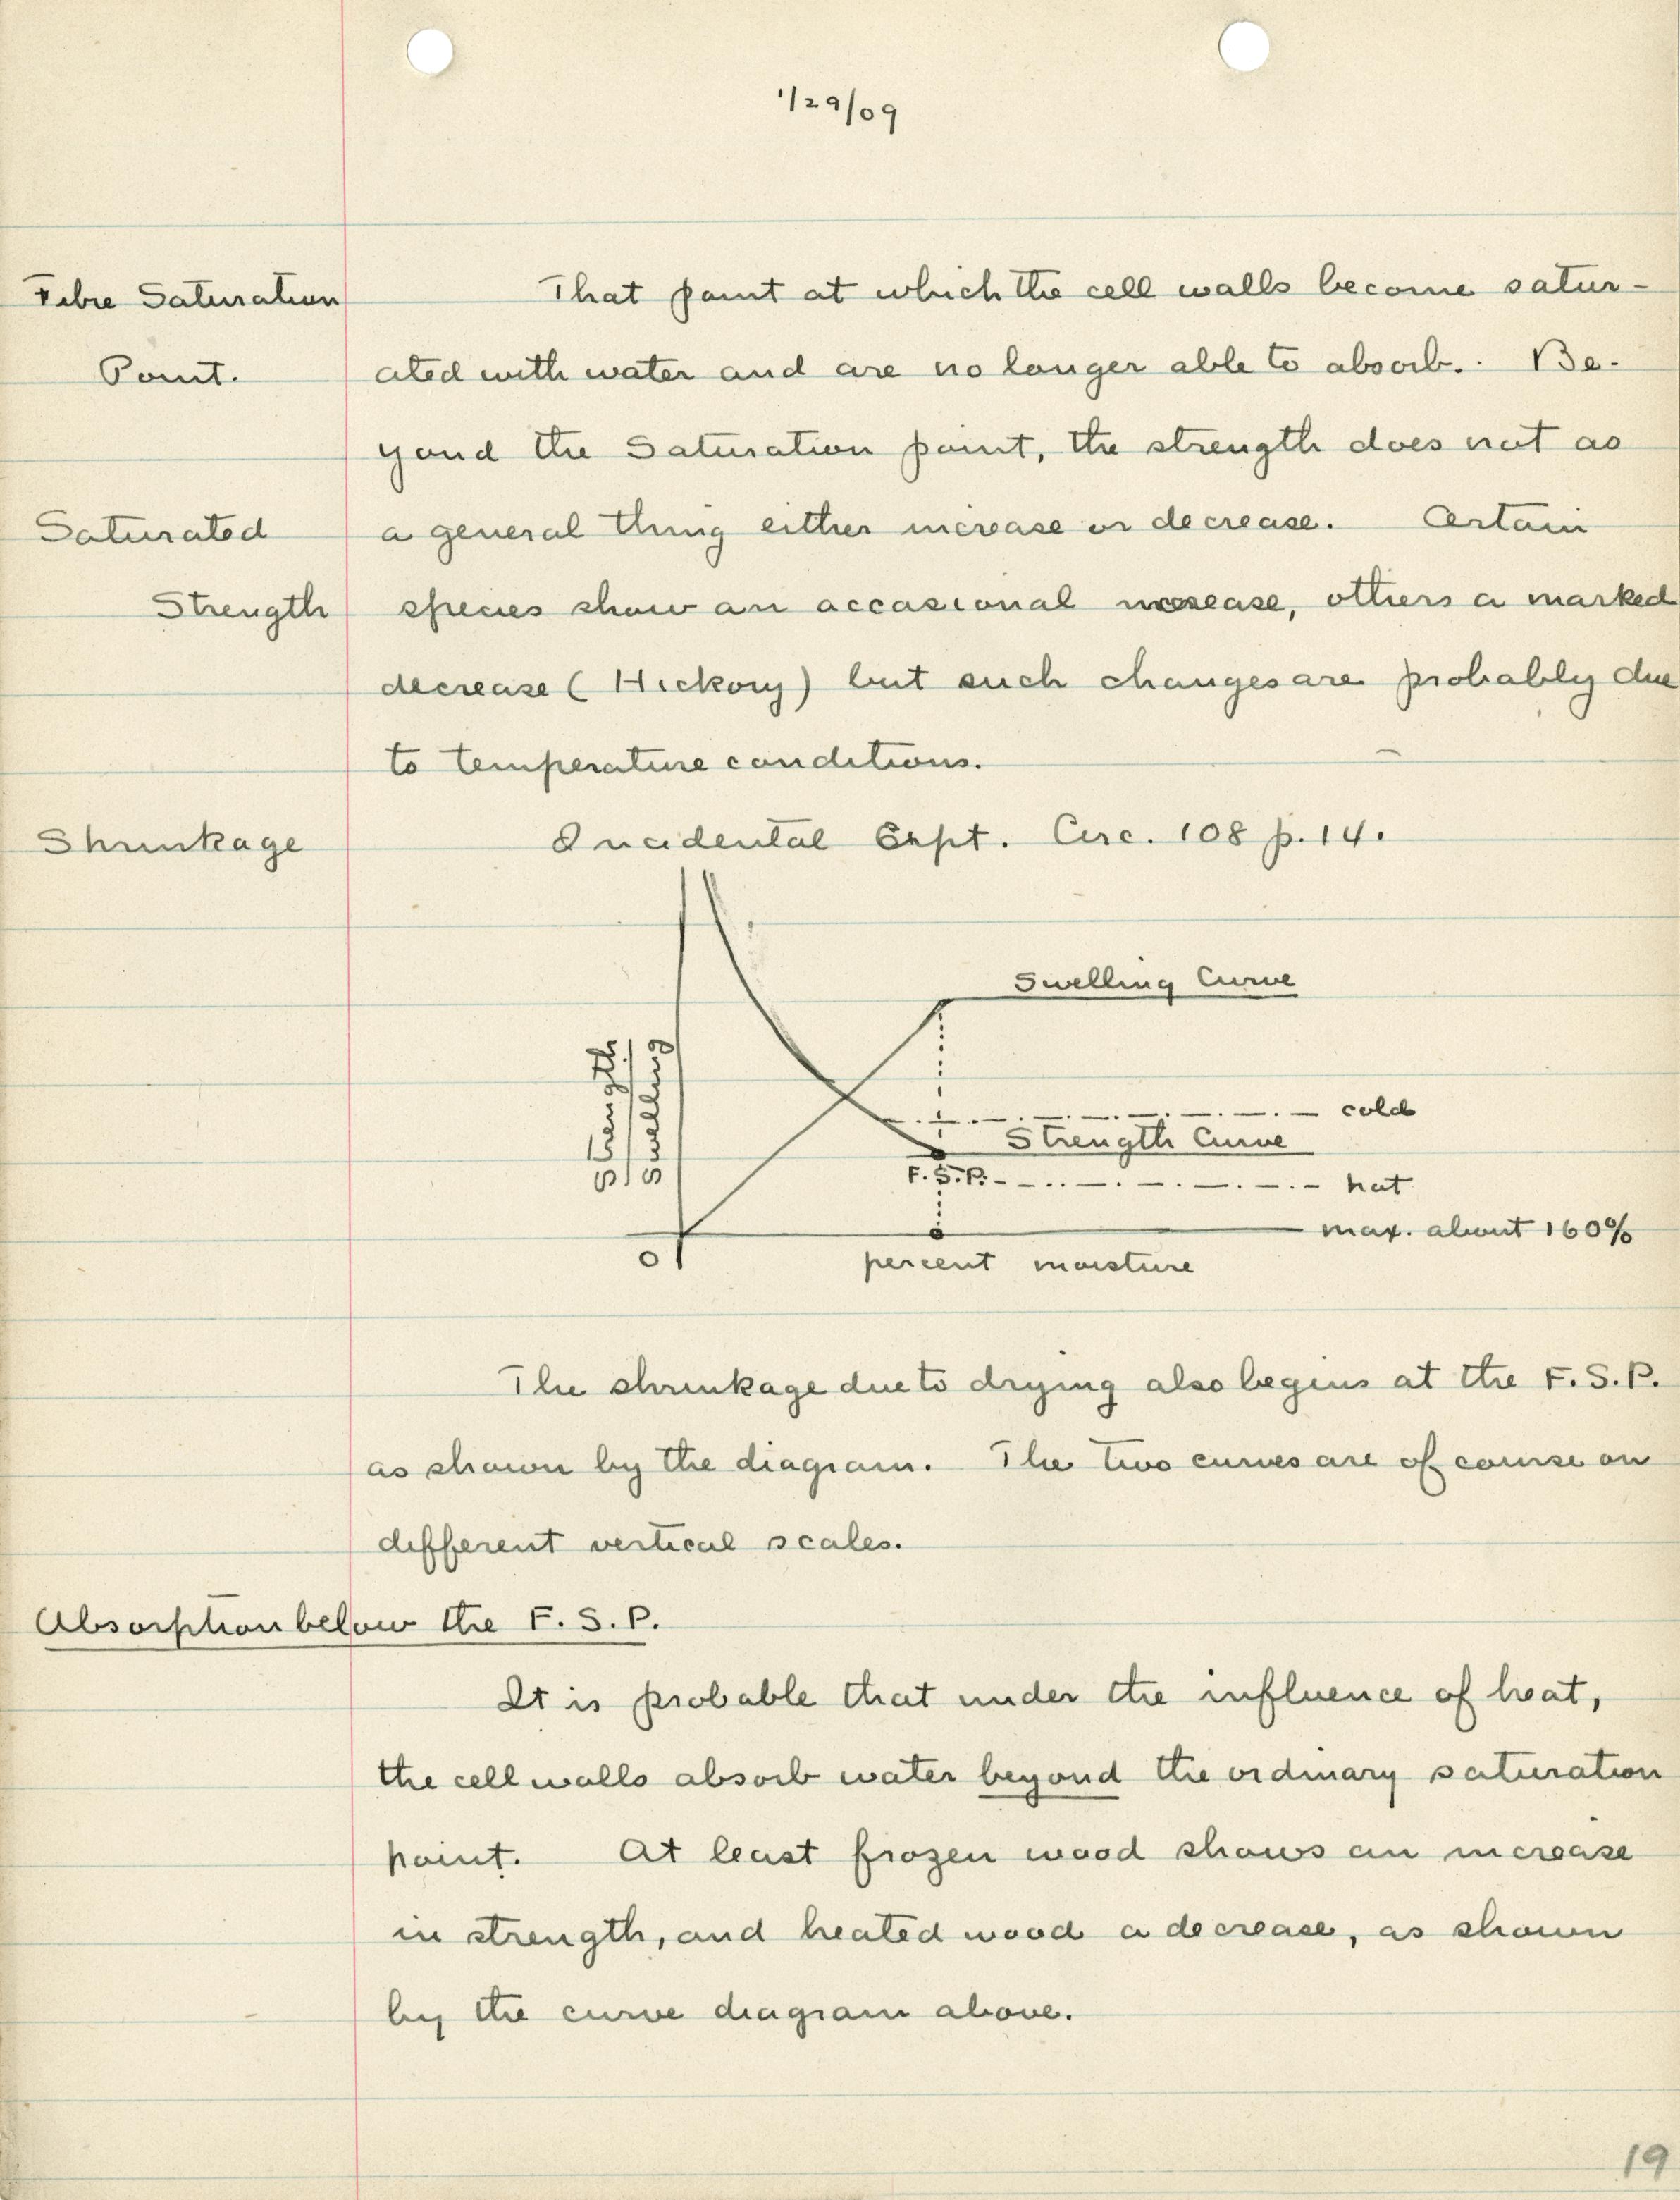 1/29/09
Fibre Saturation That point at which the cell walls become satur-
Point. ated with water and are no longer able to absorb. Be-
yond the saturation point, the strength does not as
Saturated a general thing either increase or decrease. Certain
Strength species show an occasional increase, others a marked
decrease (Hickory) but such changes are probably due
to temperature conditions.
Shrinkage Incidental Expt. Circ. 108 p. 14.
Swelling Curve
Strength
Swelling
cold
Strength Curve
F.S.P. hot
max. about 160%
0
percent moisture
The shrinkage due to drying also begins at the F.S.P.
as shown by the diagram. The two curves are of course on
different vertical scales.
Absorption below the F.S.P.
It is probable that under the influence of heat,
the cell walls absorb water beyond the ordinary saturation
point. At least frozen wood shows an increase
in strength, and heated wood a decrease, as shown
by the curve diagram above.
19